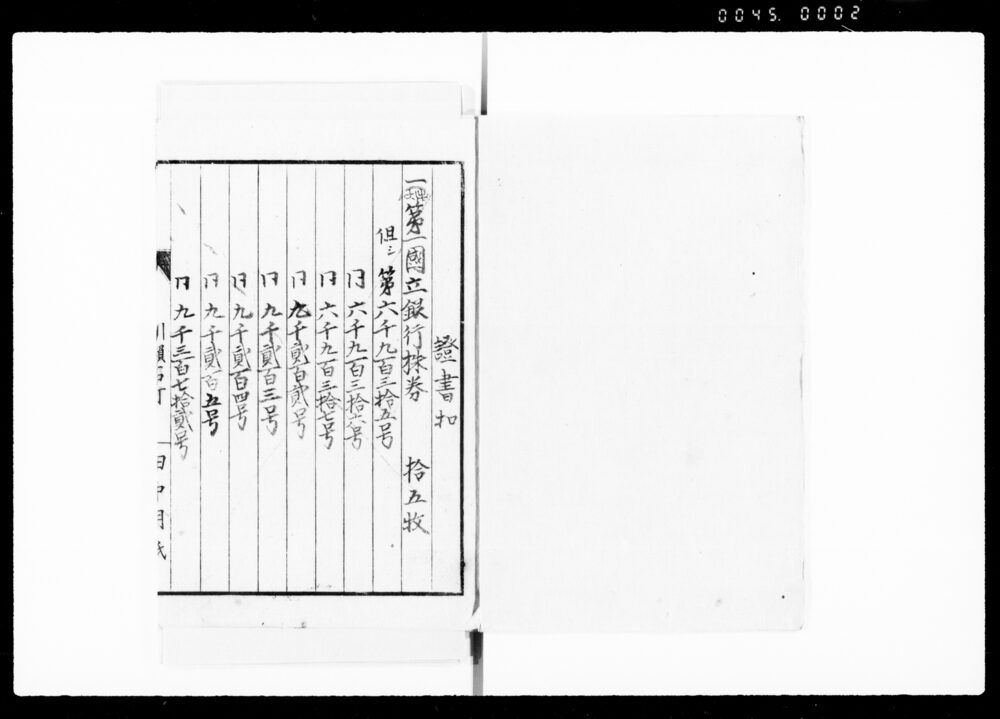 0045. 0002
證書扣
一第一國立銀行株券 拾五牧
但シ第六千九百三拾五号
同六千九百三拾六号
同六千九百三拾七号
同九千貳百貳号
同九千貳百三号
同九千貳百四号
同九千貳百五号
同九千三百七拾貳号
田中用紙